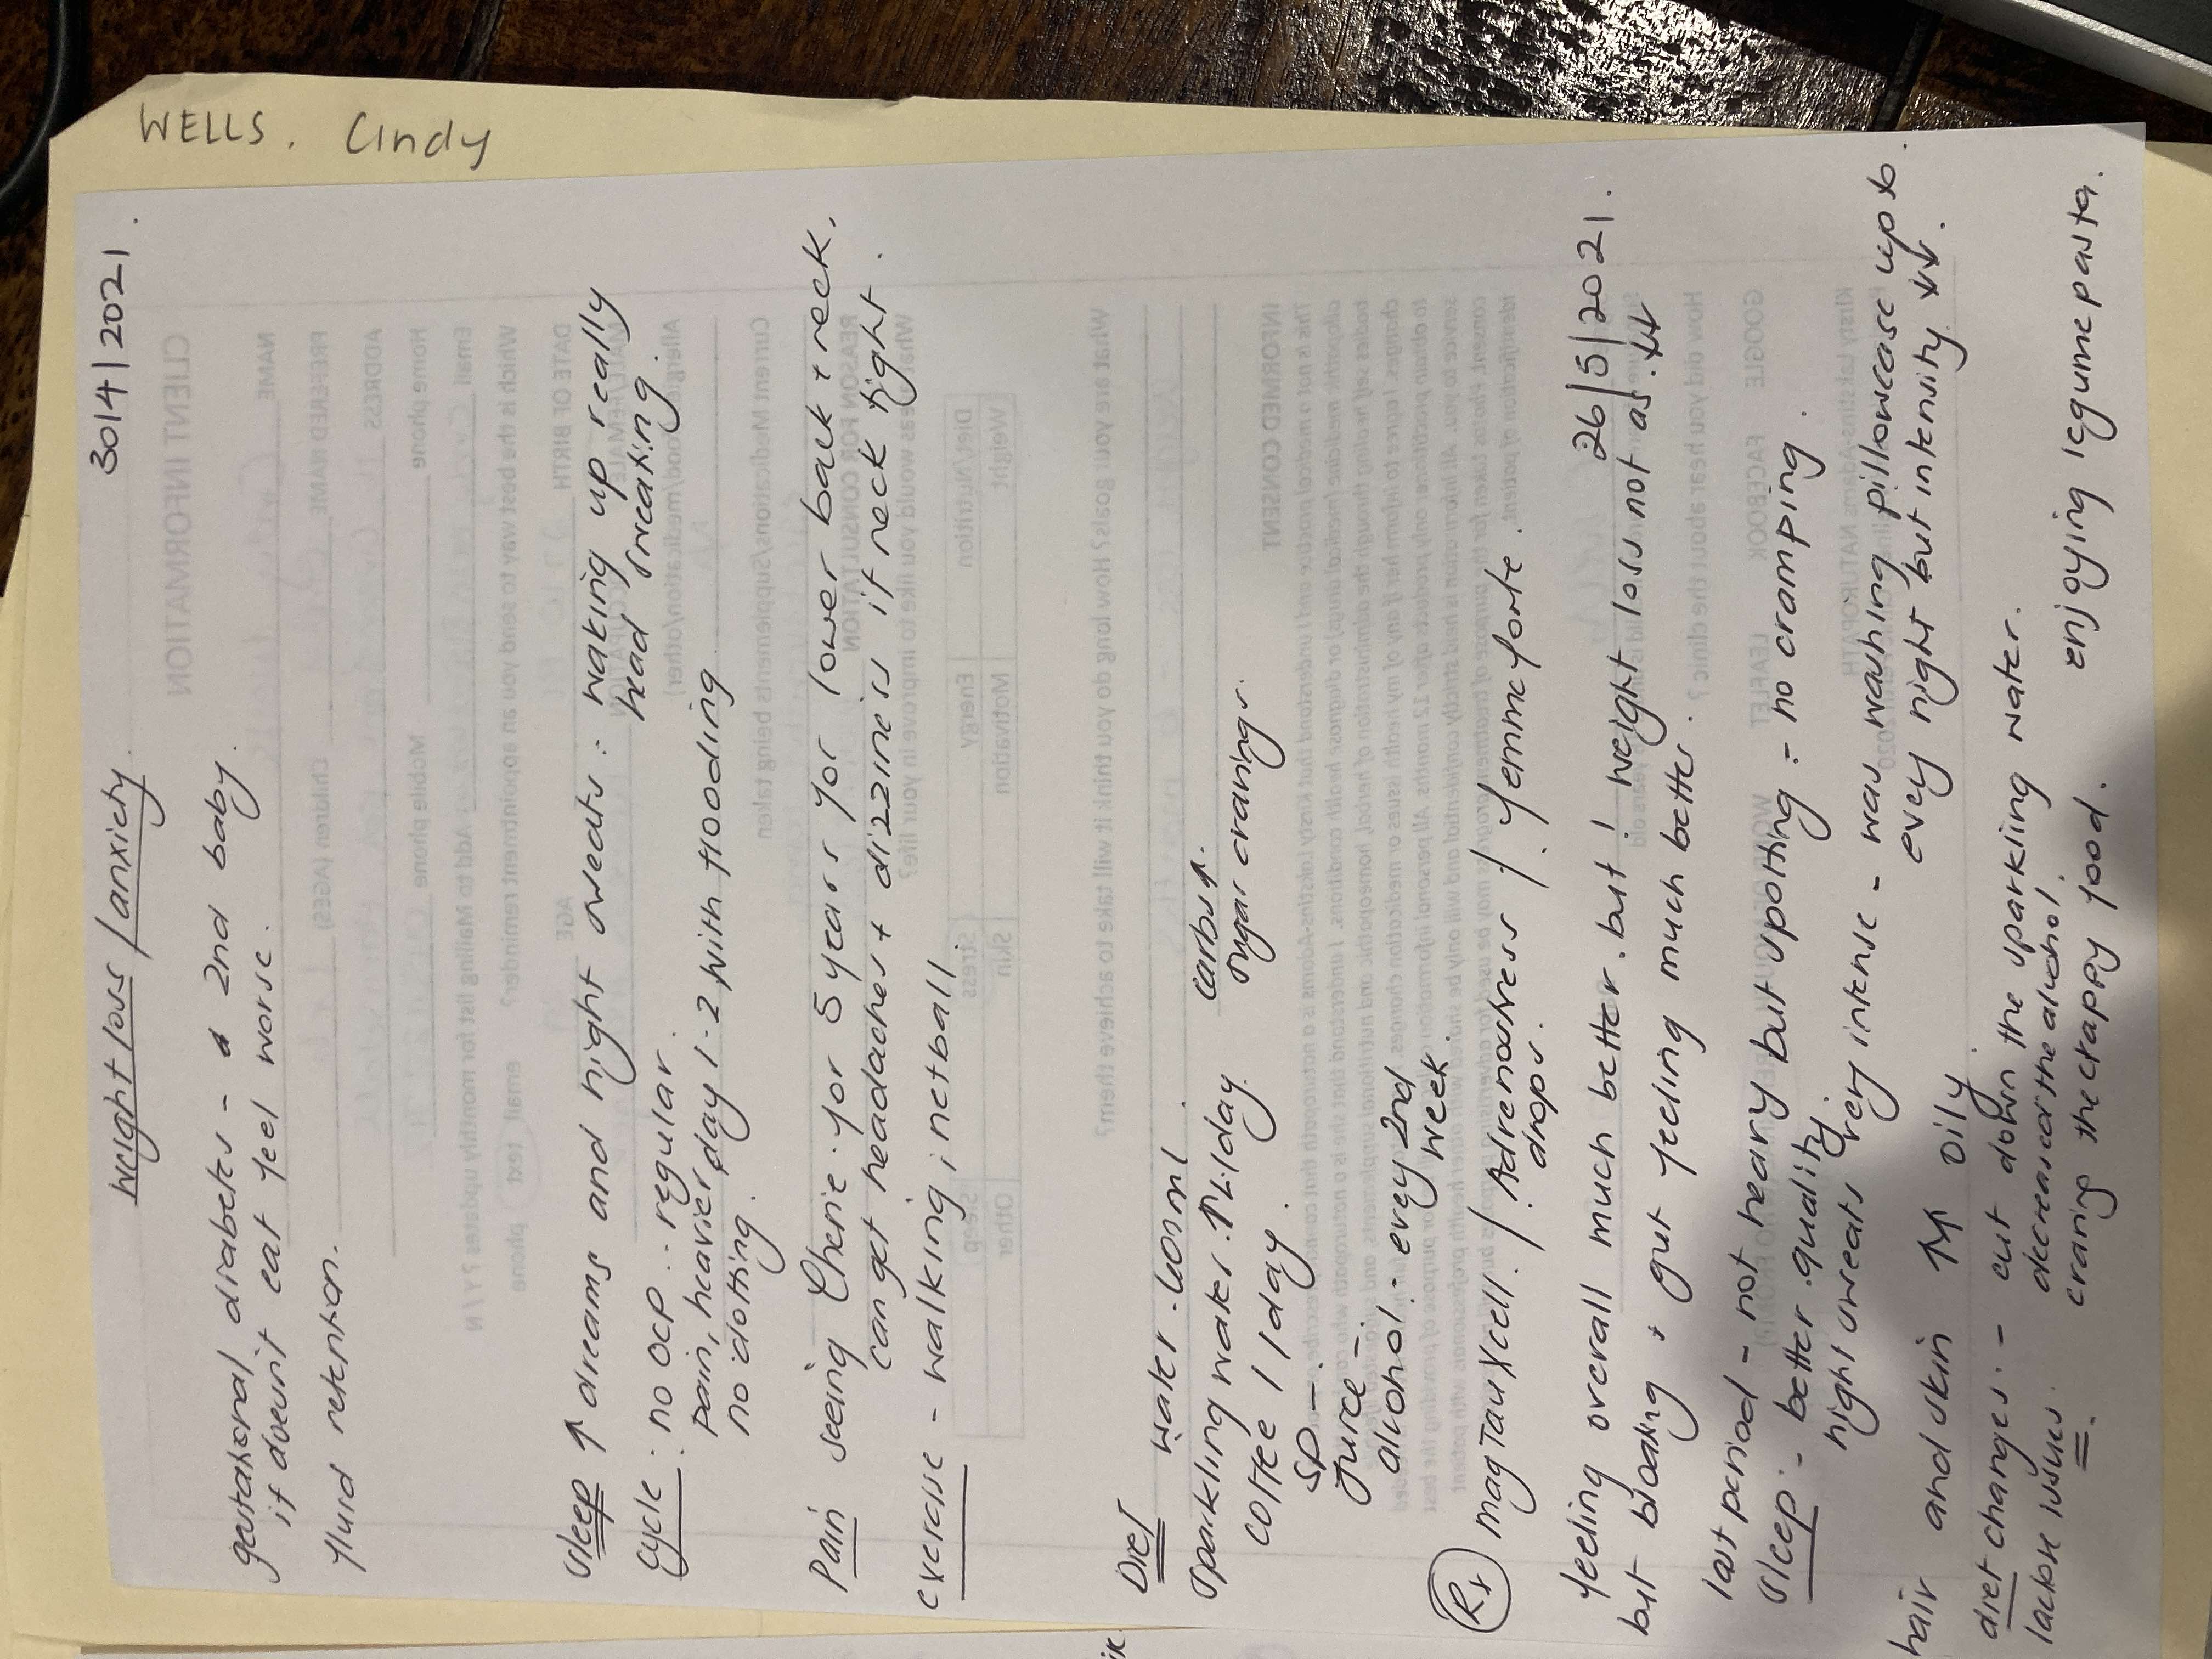 WELLS. Cindy
30/4/2021.
weight loss/anxiety.
gestational diabetes - 2nd baby.
if doesn't eat feel worse.
fluid retention.
sleep ↑ dreams and night sweats - waking up really
head sweating.
cycle: no OCP - regular.
pain, heavier day 1-2 with flooding
no clotting.
Pain seeing Cherie for 5 years for lower back + neck.
can get headaches + dizziness if neck tight.
exercise - walking, netball.
DIET water - 600ml.
sparkling water. ↑ 4/day. carbs ↑.
coffee 1/day. sugar cravings.
SD -
juice -
alcohol - every 2nd
week.
Rx magTauXcell. / Adrenostress / femme forte.
drops.
26/5/2021.
feeling overall much better. but! weight loss not as ↓↓
but bloating + gut feeling much better.
last period - not heavy but spotting - no cramping.
sleep: - better quality.
night sweats very intense - was washing pillowcase up to
every night but intensity ↓↓.
hair and skin ↑↑ oily.
diet changes: - cut down the sparkling water.
lactose issues. decreased the alcohol,
craving the crappy food. enjoying legume pasta.
CLIENT INFORMATION
NAME
PREFERRED NAME
ADDRESS
Home phone
Mobile phone
Email
Children (AGES)
Which is the best way to send you an appointment reminder? email text phone
Add to Mailing list for monthly updates? Y / N
DATE OF BIRTH
AGE
Current Medications/Supplements being taken
REASON FOR CONSULTATION
What areas would you like to improve in your life?
Weight Motivation Skin Other
Diet/Nutrition Energy Stress Sleep
What are your goals? How long do you think it will take to achieve them?
INFORMED CONSENT
How did you hear about the clinic?
GOOGLE FACEBOOK LEAFLET